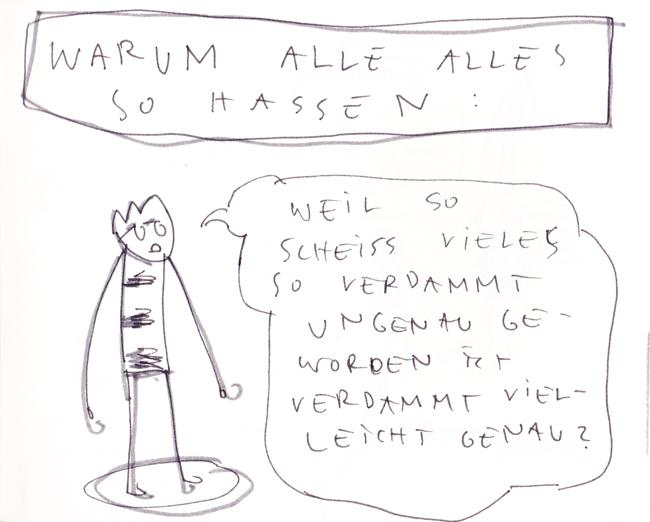 WARUM ALLE ALLES
SO HASSEN :
WEIL SO
SCHEISS VIELES
SO VERDAMMT
UNGENAU GE-
WORDEN IST
VERDAMMT VIEL-
LEICHT GENAU?